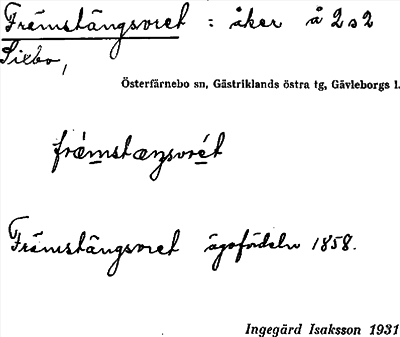 Främstängsvret : åker å 2 a 2
Sixbo,
Österfärnebo sn, Gästriklands östra tg, Gävleborgs l.
främstæŋsvrét
Främstängsvret ägofördeln 1858.
Ingegärd Isaksson 1931